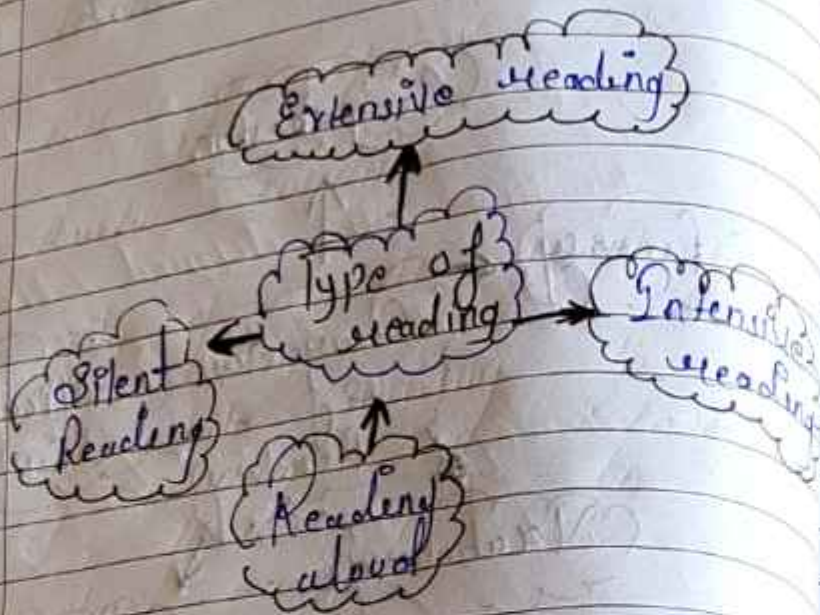 Extensive reading
Type of
reading
Intensive
reading
Silent
Reading
Reading
aloud